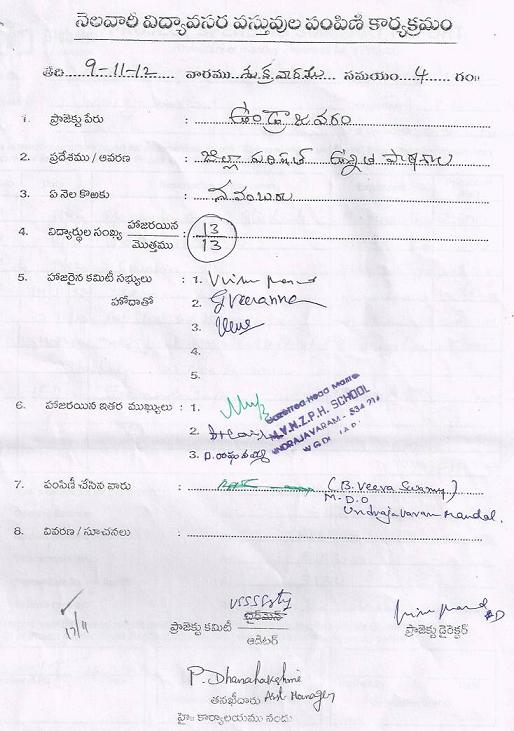 నెలవారీ విద్యావసర వస్తువుల పంపిణీ కార్యక్రమం
తేది 9-11-12 వారము శుక్రవారము సమయం 4 గం॥
1. ప్రాజెక్టు పేరు : ఉండ్రాజవరం
2. ప్రదేశము / ఆవరణ : జిల్లా పరిషత్ ఉన్నత పాఠశాల
3. ఏ నెల కొఱకు : నవంబరు
4. విద్యార్థుల సంఖ్య హాజరయిన / మొత్తము : 13 / 13
5. హాజరైన కమిటీ సభ్యులు : 1.
హోదాతో 2. G Veeranna
3.
4.
5.
6. హాజరయిన ఇతర ముఖ్యులు : 1.
Gazetted Head Master
2. Z.P.H. SCHOOL
3. UNDRAJAVARAM - 534 216
W.G.Dt. (A.P.)
7. పంపిణీ చేసిన వారు : (B. Veera Swamy)
M.D.O
Undrajavaram Mandal.
8. వివరణ / సూచనలు :
17/11
ప్రాజెక్టు కమిటీ ఛైర్మెన్ ప్రాజెక్టు డైరెక్టర్
ఆడిటర్
P. Dhanalakshmi
తనఖీదారు Asst Manager
హై॥ కార్యాలయము నందు